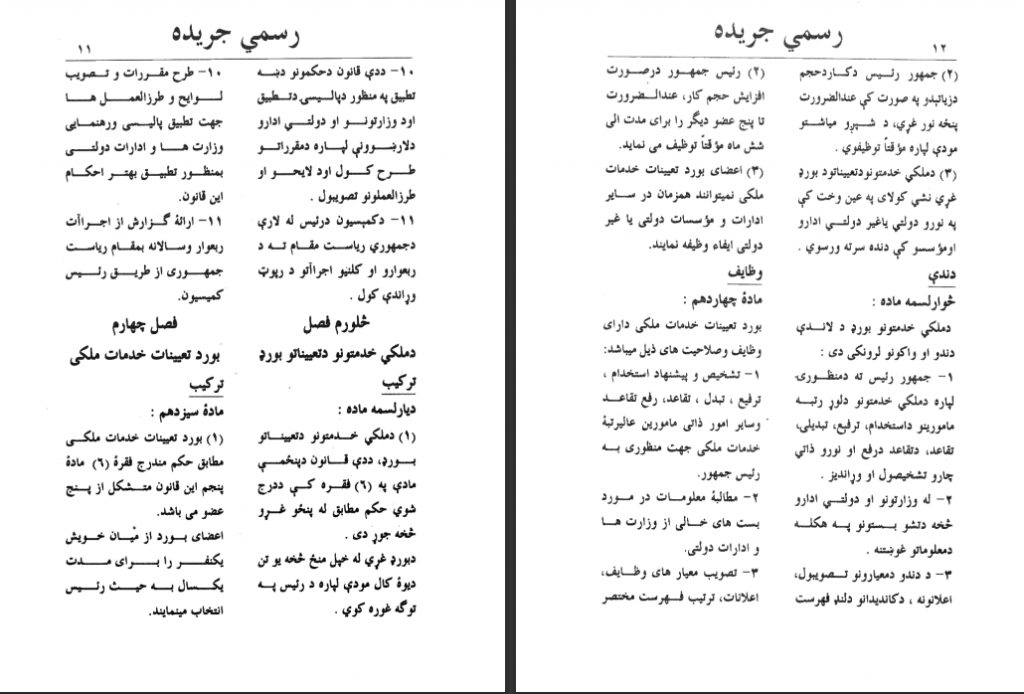 رسمي جريده
۱۱
۱۰- ددې قانون دحکمونو دښه
تطبيق په منظور دپاليسۍ دتطبيق
اود وزارتونو او دولتي ادارو
دلارښوونې لپاره دمقرراتو
طرح کول اود لايحو او
طرزالعملونو تصويبول .
۱۱- دکمېسيون درئيس له لارې
دجمهوري رياست مقام ته د
ربعوارو او کلنيو اجراآتو د رپوټ
وړاندې کول .
څلورم فصل
دملکي خدمتونو دتعييناتو بورډ
ترکيب
ديارلسمه ماده :
(۱) دملکي خدمتونو دتعييناتو
بورډ، ددې قانون دپنځمې
مادې په (۶) فقره کې ددرج
شوي حکم مطابق له پنځو غړو
څخه جوړ دی .
دبورډ غړي له خپل منځ څخه يو تن
ديوۀ کال مودې لپاره د رئيس په
توگه غوره کوي .
۱۰- طرح مقررات و تصويب
لوايح و طرزالعمل ها
جهت تطبيق پاليسی ورهنمايی
وزارت ها و ادارات دولتی
بمنظور تطبيق بهتر احکام
اين قانون.
۱۱- ارائۀ گزارش از اجراآت
ربعوار وسالانه بمقام رياست
جمهوری از طريق رئيس
کميسيون.
فصل چهارم
بورد تعيينات خدمات ملکی
ترکيب
مادۀ سيزدهم :
(۱) بورد تعيينات خدمات ملکی
مطابق حکم مندرج فقرۀ (۶) مادۀ
پنجم اين قانون متشکل از پنج
عضو می باشد.
اعضای بورد از ميان خويش
يکنفر را برای مدت
يکسال به حيث رئيس
انتخاب مينمايند.
رسمي جريده
۱۲
(۲) جمهور رئيس دکارد‌حجم
دزياتېدو په صورت کې عندالضرورت
پنځه نور غړي، د شپږو مياشتو
مودې لپاره مؤقتاً توظيفوي .
(۳) دملکي خدمتونودتعييناتود بورډ
غړي نشي کولای په عين وخت کې
په نورو دولتي ياغير دولتي ادارو
اومؤسسو کې دنده سرته ورسوي .
دندې
څوارلسمه ماده :
دملکي خدمتونو بورډ د لاندې
دندو او واکونو لرونکی دی :
۱- جمهور رئيس ته دمنظورۍ
لپاره دملکي خدمتونو دلوړ رتبه
مامورينو داستخدام، ترفيع، تبديلۍ،
تقاعد، دتقاعد درفع او نورو ذاتي
چارو تشخيصول او وړانديز .
۲- له وزارتونو او دولتي ادارو
څخه دتشو بستونو په هکله
دمعلوماتو غوښتنه .
۳- د دندو دمعيارونو تصويبول،
اعلانونه ، دکانديدانو دلنډ فهرست
(۲) رئيس جمهور درصورت
افزايش حجم کار، عندالضرورت
تا پنج عضو ديگر را برای مدت الی
شش ماه مؤقتاً توظيف می نمايد.
(۳) اعضای بورد تعيينات خدمات
ملکی نميتوانند همزمان در ساير
ادارات و مؤسسات دولتی يا غير
دولتی ايفاء وظيفه نمايند.
وظايف
مادۀ چهاردهم :
بورد تعيينات خدمات ملکی دارای
وظايف وصلاحيت های ذيل ميباشد:
۱- تشخيص و پيشنهاد استخدام ،
ترفيع ، تبدل ، تقاعد، رفع تقاعد
وساير امور ذاتی مامورين عاليرتبۀ
خدمات ملکی جهت منظوری به
رئيس جمهور.
۲- مطالبۀ معلومات در مورد
بست های خالی از وزارت ها
و ادارات دولتی.
۳- تصويب معيار های وظايف،
اعلانات، ترتيب فهرست مختصر